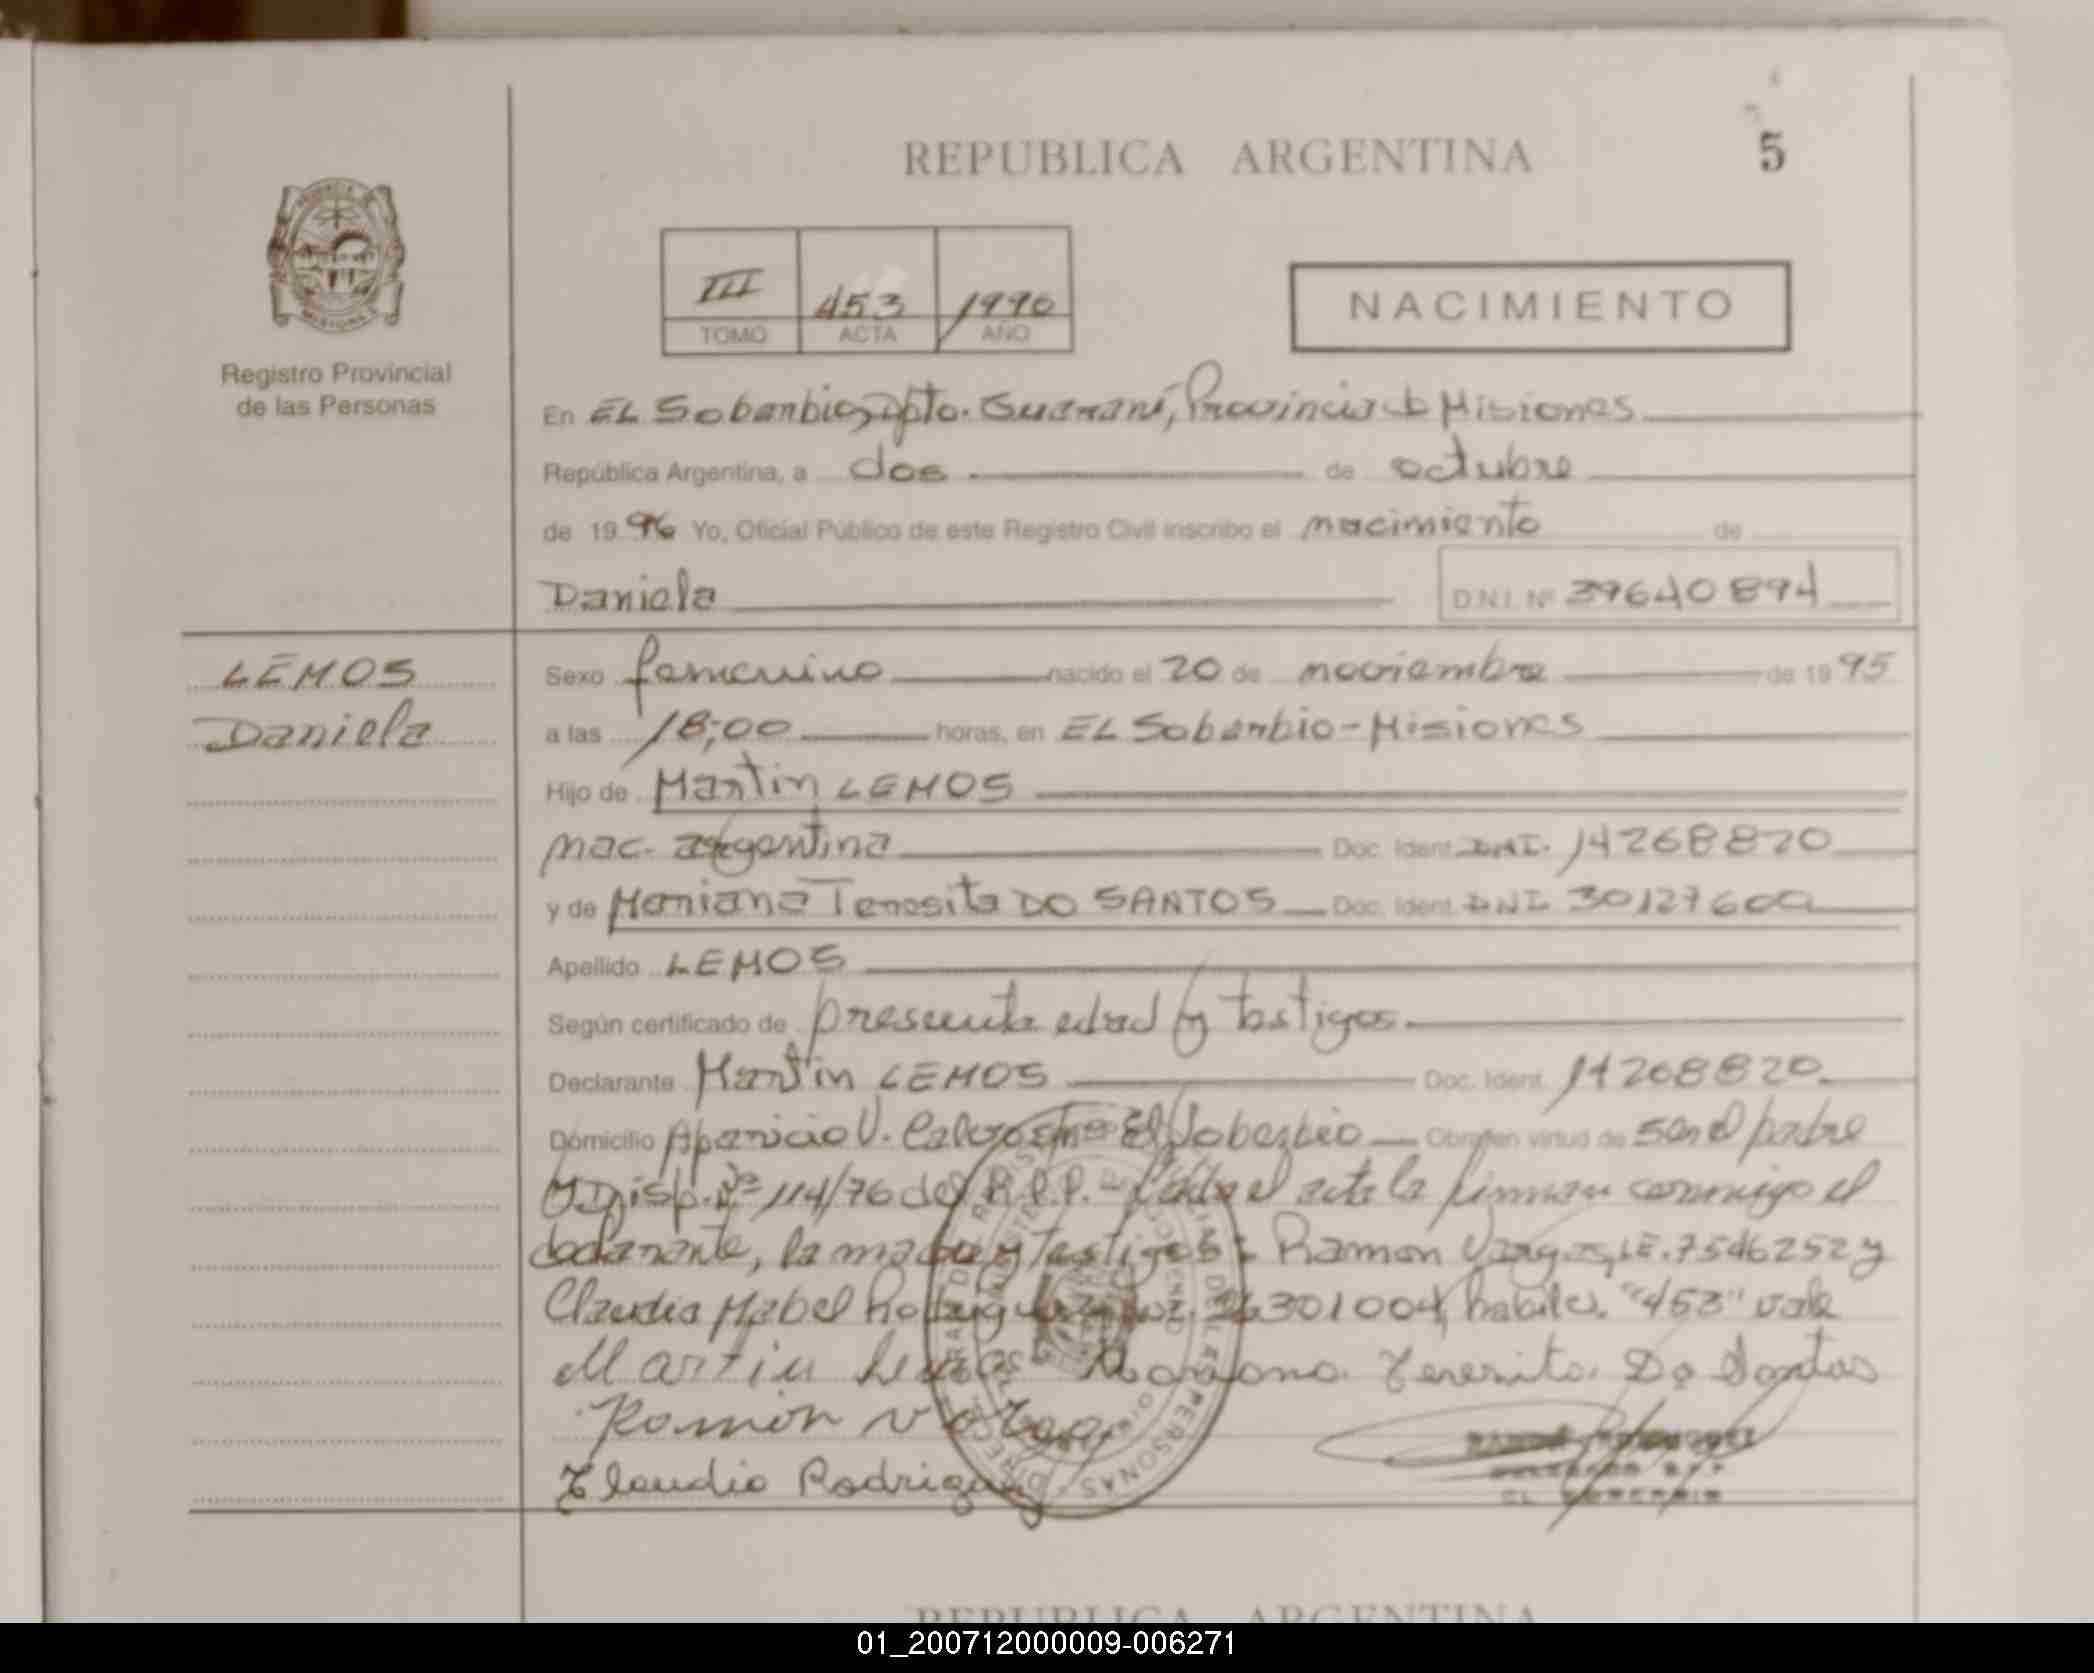 REPUBLICA ARGENTINA
5
III 453 1996
TOMO ACTA AÑO
NACIMIENTO
Registro Provincial
de las Personas
En EL Soberbio, Dpto. Guaraní, Provincia de Misiones
República Argentina, a dos de octubre
de 1996 Yo, Oficial Público de este Registro Civil inscribo el nacimiento de
Daniela D.N.I. Nº 39640894
LEMOS
Daniela
Sexo femenino nacido el 20 de noviembre de 1995
a las 18;00 horas, en EL Soberbio-Misiones
Hijo de Martin LEMOS
nac. argentina Doc. Ident. DNI. 14268820
y de Mariana Teresita DO SANTOS Doc. Ident. DNI 30127600
Apellido LEMOS
Según certificado de presunta edad y testigos.
Declarante Martin LEMOS Doc. Ident. 14268820.
Domicilio Aparicio V. El Soberbio Obra en virtud de ser el padre
y Disp. Nº 114/76 del R.P.P. - Leída el acta la firman conmigo el
declarante, la madre y testigos: Ramon Vargas, LE. 7546252 y
Claudia Mabel Rodriguez 26301004, habiles. "453" vale
Martin Lemos Mariana Teresita Do Santos
Ramon
Claudia Rodriguez
EL SOBERBIO
REPUBLICA ARGENTINA
01_200712000009-006271